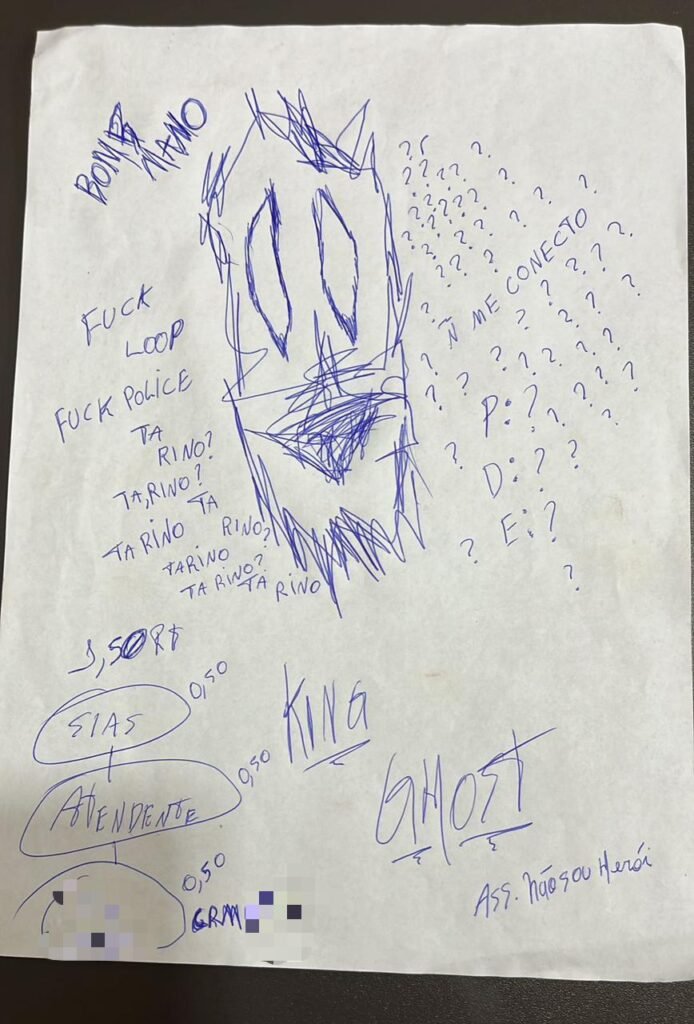 BOMB
MANO
FUCK
LOOP
FUCK POLICE
TA
RINO?
TA, RINO?
TA
TA RINO
RINO?
TARINO
TA RINO?
TA RINO
? ? ?
? ? ? ? ?
? ? ? ? ?
? ? ? ? ?
Ñ ME CONECTO
P:?
D:?
E:?
1,50R$
0,50
SIAS
0,50
ATENDENTE
0,50
CRM
KING
GHOST
Ass. Não sou Herói